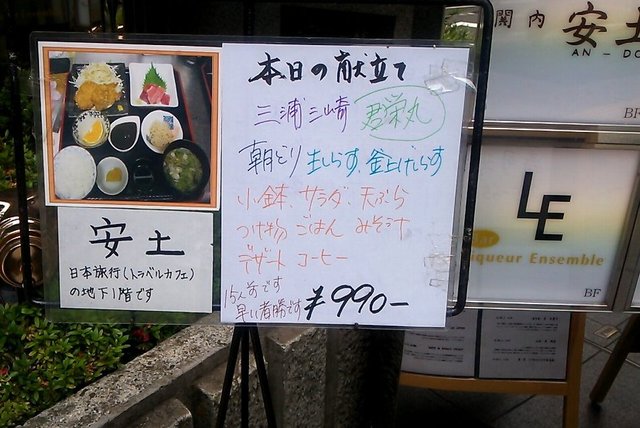 本日の献立て
三浦三崎 君栄丸
朝どり 生しらす、釜上げしらす
小鉢、サラダ、天ぷら
つけ物 ごはん みそ汁
デザート コーヒー
15人前です
早い者勝です
¥990-
安土
日本旅行(トラベルカフェ)
の地下1階です
関内
安土
AN-DO
BF
LE
Bar
Liqueur Ensemble
BF